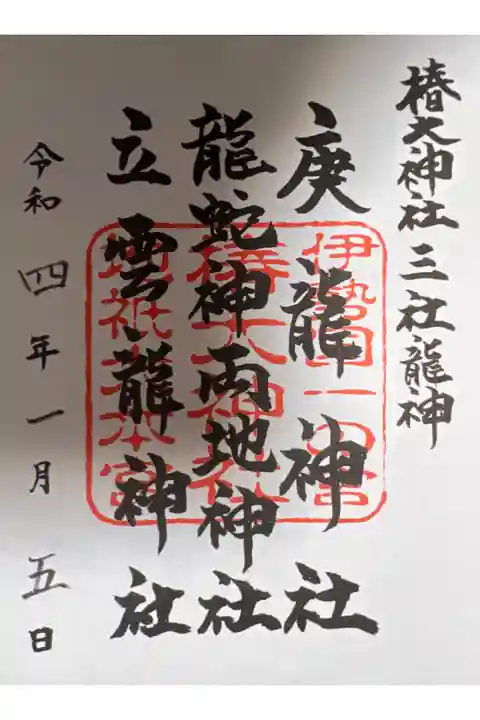 椿大神社三社龍神
庚龍神社
龍蛇神両地神社
立雲龍神社
令和四年一月五日
伊勢国一の宮
椿大神社
地祇大本宮